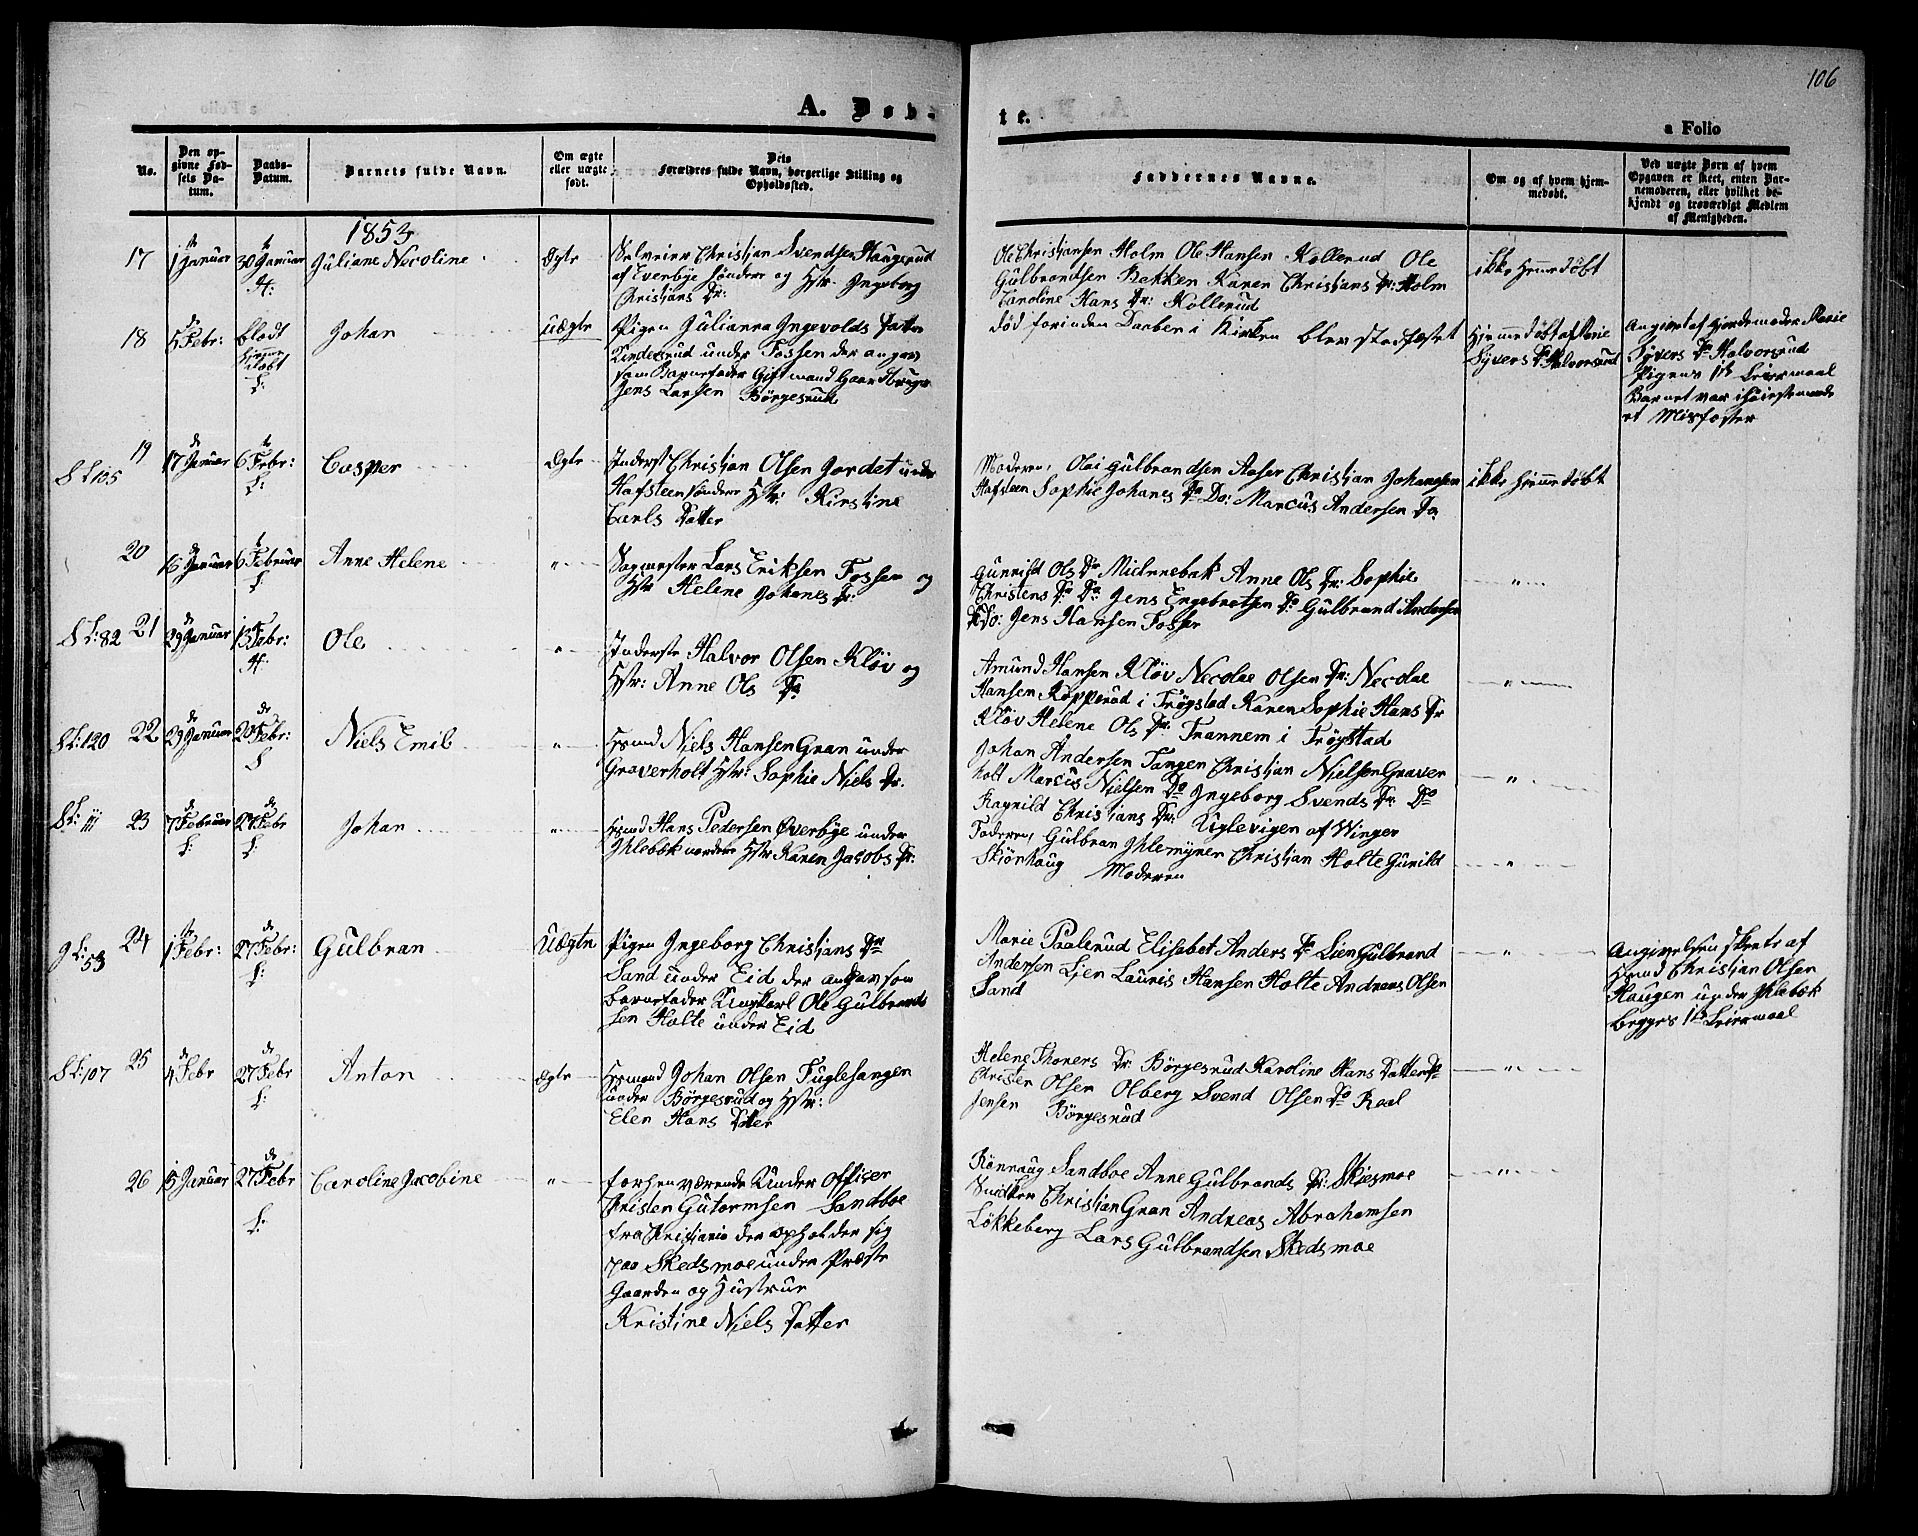 106
A. Døb-
te.
a Folio
No.
Den op-
givne Fød-
sels Da-
tum.
Daabs-
Datum.
Barnets fulde Navn.
Om ægte
eller uægte
født.
Dets
Forældres fulde Navn, borgerlige Stilling og
Opholdssted.
Faddernes Navne.
Om og af hvem hjem-
medøbt.
Ved uægte Børn af hvem
Opgaven er skeet, enten Bar-
nemoderen, eller hvilket be-
kjendt og troværdigt Medlem
af Menigheden.
1853
17
1 Januar
30 Januar
H:
Juliane Nicoline
Ægte
Selveier Christjan Svendsen Haugerud
af Evenbye søndere og Hstr. Ingeborg
Christjans Dr:
Ole Christjansen Holm Ole Hansen Kollerud Ole
Gulbrandsen Bekken Karen Christjans Dr: Holm
Caroline Hans Dr: Kollerud
ikke Hjemedøbt
18
5 Febr:
blodt
Hjeme
døbt
S:
Johan
Uægte
Pigen Julianna Ingevolds Datter
Kindesrud under Fossen der angav
som Barnefader Gift mand Gaardbruger
Jens Larsen Börgesrud
død forinden Daaben i Kirken blev stadfæstet
Hjemmedøbt af Marie
Syvers Dr Halvorsrud
Angivet af Gjordemoder Marie
Syvers Dr Halvorsrud
Pigens 1ste Leiermaal
Barnet var i høieste maade
et Misfoster
S L 105
19
17 Januar
6 Febr:
S:
Casper
Ægte
Inderst Christjan Olsen Jordet under
Hafsteen søndere Hstr: Kirstine
Carls Datter
Moderen, Oloi Gulbrandsen Aaser Christjan Johansen
Hafsteen Sophie Johanes Dr Do: Marcus Andersen Do
ikke Hjemedøbt
20
16 Januar
6 Februar
S:
Anne Helene
"
Sagmester Lars Eriksen Fossen og
Hstr Helene Johanes Dr:
Gunnild Ols Dr Michnnebak Anne Ols Dr: Sophie
Christens Dr Do: Jens Engebretsen Do Gulbrand Andersen
Do: Jens Hansen Fosser
"
S L: 82
21
29 Januar
13 Febr:
H:
Ole
"
Inderste Halvor Olsen Kløv og
Hstr: Anne Ols Dr
Amund Hansen Kløv Necolae Olsen Do: Necolae
Hansen Kopperud i Trøgstad Karen Sophie Hans Dr
Kløv Helene Ols Dr: Trannem i Trøgstad
"
S L: 120
22
29 Januar
20 Febr:
S
Niels Emil
"
Hsmd Niels Hansen Gran under
Graverholt Hstr: Sophie Niels Dr.
Johan Andersen Tangen Christjan Nielsen Graver
holt Marcus Nielsen Do Ingeborg Svends Dr: Do
Ragnild Christjans Dr: Kiglevigen af Winger
"
S L: 111
23
7 Februar
S:
27 Febr
S:
Johan
"
Hsmd Hans Pedersen Øverbye under
Ihlebæk nordre Hstr Karen Jacobs Dr:
Faderen, Gulbran Ihlemyren Christjan Holte Gunild
Skjönhaug Moderen
"
G L: 53
24
1 Febr:
27 Febr:
S:
Gulbran
Uægte
Pigen Ingeborg Christjans Dr
Sand under Eid der angav som
barnefader Ungkarl Ole Gulbrand
sen Holte under Eid
Marie Paalerud Elisabet Anders Dr Lien Gulbrand
Andersen Lien Lauris Hansen Holte Andreas Olsen
Sand
"
Angivelsen skeete af
Hsmd Christjan Olsen
Haugen under Ihlebæk
begges 1ste Leiermaal
S L: 107
25
4 Febr
27 Febr
S:
Anton
Ægte
Hsmand Johan Olsen Fuglesangen
under Börgesrud og Hstr:
Elen Hans Datter
Helene Thorers Dr: Börgesrud Karoline Hans Datter Do
Christen Olsen Olberg Svend Olsen Do Roal
Jensen Börgesrud
"
26
15 Januar
27 Febr
S:
Caroline Jacobine
"
forhen værende Under Officer
Christen Gutormsen Sandboe
fra Christjania der opholder sig
paa Skedsmoe under Præste
Gaarden og Hustrue
Kristine Niels Datter
Rönnaug Sandboe Anne Gulbrands Dr: Skiesmoe
Snidker Christjan Gran Andreas Abrahamsen
Løkkeberg Lars Gulbrandsen Skedsmoe
"